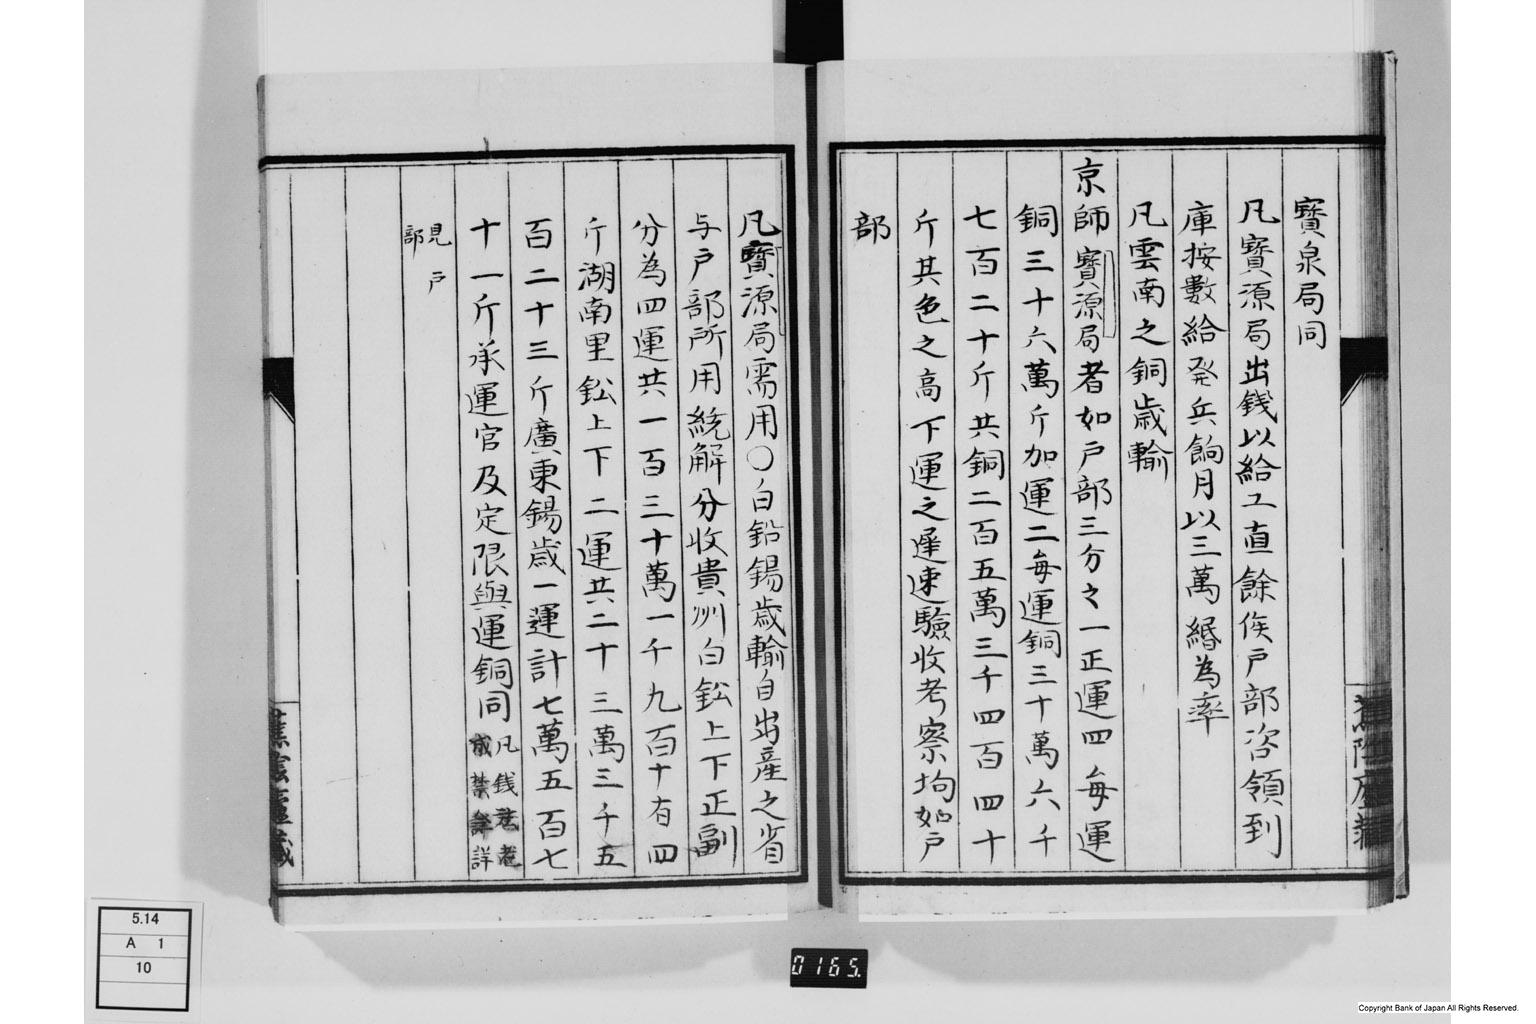 寳泉局同
凡寳源局出銭以給工直餘俟戸部咨領到
庫按數給発兵餉月以三萬緡為率
凡雲南之銅歳輸
京師寳源局者如戸部三分之一正運四毎運
銅三十六萬斤加運二毎運銅三十萬六千
七百二十斤共銅二百五萬三千四百四十
斤其色之高下運之遅速驗收考察均如戸
部
凡寳源局需用○白鉛錫歳輸自出産之省
与戸部所用統解分收貴州白鈆上下正副
分為四運共一百三十萬一千九百十有四
斤湖南里鈆上下二運共二十三萬三千五
百二十三斤廣東錫歳一運計七萬五百七
十一斤承運官及定限與運銅同
凡銭
禁
詳
見戸
部
蕉陰廬藏
5.14
A 1
10
0165.
Copyright Bank of Japan All Rights Reserved.